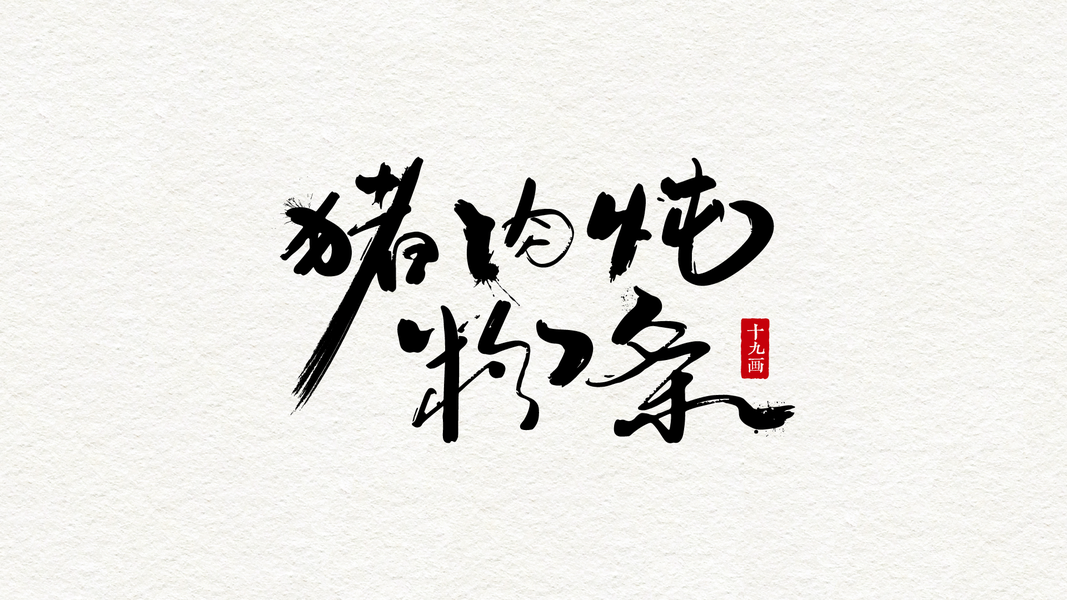 猪肉炖
粉条
十九画